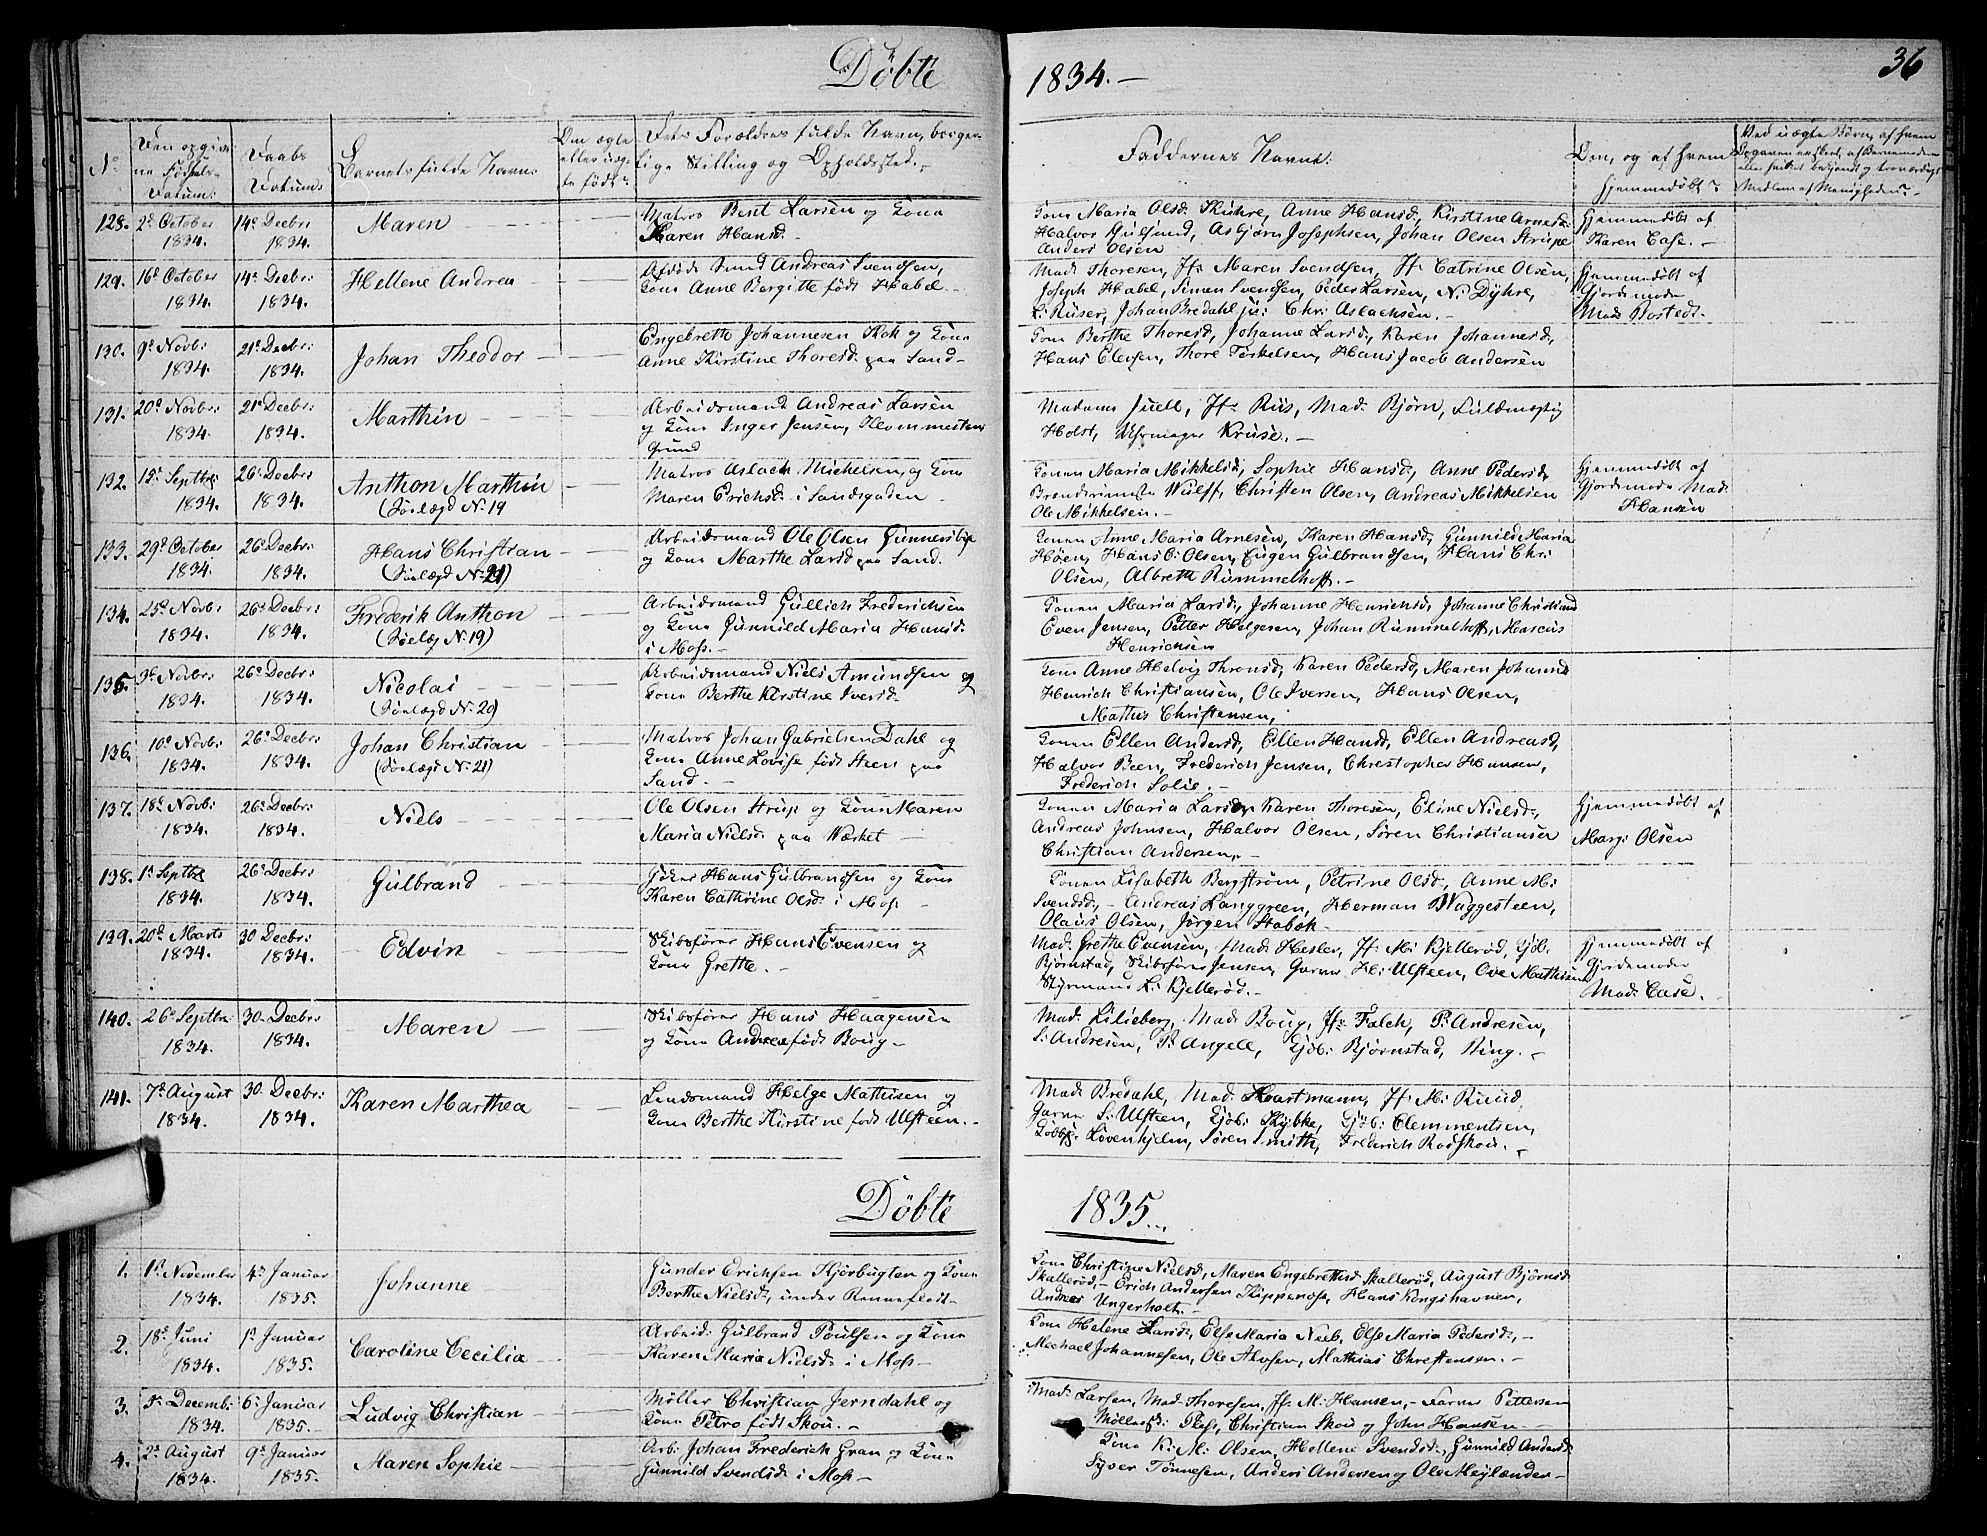 Döbte
1834.-
36
No
Den opgiv-
ne Födsels-
Datum:
Daabs
Datum:
Barnets fulde Navn:
Om ægte
eller uæg-
te födt:
Dets Forældres fulde Navn, borger-
lige Stilling og Opholdssted.
Faddernes Navne:
Om, og af hvem
hjemmedöbt:
128. 2d October 1834. 14d Decbr 1834. Maren
Matros Bent Larsen og Kone
Karen Hansd.
Kone Maria Olsd. Skuhre, Anne Hansd, Kirstine Arnesd:
Halvor Gulsund, Asbjørn Josephsen, Johan Olsen Strupe
Anders Olsen
Hjemmedöbt af
Karen Case.
129. 16d October 1834. 14d Decbr: 1834. Hellene Andrea
Afdöde Smed Andreas Svendsen,
Kone Anne Bergitte födt Habel
Mad: Thoresen, Jfr Maren Svendsen, Jfr Catrine Olsen,
Joseph Habel, Simen Svendsen, Peder Larsen, N: Dyhre,
L: Rüser, Johan Bredahl ju: Chr: Aslachsen.
Hjemmedöbt af
Gjordemoder
Mad: Rostedt.
130. 9d Novbr: 1834. 21d Decbr: 1834. Johan Theodor
Engebreth Johannesen Kok og Kone
Anne Kirstine Thoresd. paa Sand
Kone Berthe Thoresd, Johanne Larsd, Karen Johannesd,
Hans Elefsen, Thore Terkelsen, Hans Jacob Andersen
131. 20d Novbr: 1834. 21d Decbr: 1834. Marthin
Arbeidsmand Andreas Larsen
og Kone Inger Jensen,
Grund
Madame Juell, Jfr Rüs, Mad: Bjørn, Fuldmægtig
Holst, Uhrmager Kruse.
132. 15d Septbr: 1834. 26d Decbr: 1834. Anthon Marthin
(Sölægd No 19
Matros Aslach Michelsen, og Kone
Maren Erichsd: i Sandgaden
Konen Maria Mikkelsd, Sophie Hansd, Anne Pedersd,
Wulff, Christen Olsen, Andreas Mikkelsen
Ole Mikkelsen.
Hjemmedöbt af
Gjordemoder Mad:
Hansen
133. 29d October 1834. 26d Decbr: 1834. Hans Christian
(Sölægd No 21)
Arbeidsmand Ole Olsen Gunnersbye
og Kone Marthe Larsd paa Sand.
Konen Anne Maria Arnesen, Karen Hansd, Gunnild Maria
Høen, Hans C: Olsen, Eugen Gulbrandsen, Hans Chr:
Olsen, Albreth Rummelhoff.
134. 25d Novbr: 1834. 26d Decbr: 1834. Frederik Anthon
(Sölæg No 19)
Arbeidsmand Gullich Frederichsen
og Kone Gunnild Maria Hansd:
i Moss.
Konen Maria Larsd, Johanne Henrichsd, Johanne Christiansd
Even Jensen, Petter Helgesen, Johan Rummelhoff, Marcus
Henrichsen
135. 9d Novbr: 1834. 26d Decbr: 1834. Nicolai
(Sölægd No 20)
Arbeidsmand Niels Amundsen og
Kone Berthe Kirstine Iversd.
Kone Anne Helvig Thronsd, Karen Pedersd, Maren Johannes
Henrich Christiansen, Ole Iversen, Hans Olsen,
Mathis Christensen,
136. 10d Novbr: 1834. 26d Decbr: 1834. Johan Christian
(Sölægd No 21)
Matros Johan Gabrielsen Dahl og
Kone Anne Lovise födt Steen paa
Sand.
Konen Ellen Andersd, Ellen Hansd, Ellen Andreasd,
Halvor Been, Frederich Jensen, Christopher Hansen,
Frederich Solie.
137. 18d Novbr: 1834. 26d Decbr: 1834. Niels
Ole Olsen Strup og Kone Maren
Maria Nielsd: paa Værket
Konen Maria Larsen, Karen Thoresen, Eline Nielsd,
Andreas Johnsen, Halvor Olsen, Sören Christiansen
Christian Andersen,
Hjemmedöbt af
Marg: Olsen
138. 1d Septbr 1834. 26d Decbr: 1834. Gulbrand
Hans Gulbrandsen og Kone
Karen Cathrine Olsd: i Moss
Konen Lisabeth Bergström, Petrine Olsd, Anne M:
Svendsd, Andreas Langgreen, Herman Waggesteen,
Olaus Olsen, Jörgen Stabek
139. 20d Marts 1834. 30 Decbr: 1834. Edvin
Skibsförer Hans Evensen og
Kone Grethe.
Mad: Grethe Evensen, Mad: Hesler, Jfr M: Kjellerød, Kjöb:
Bjørnstad, Skibsförer Jensen, Garver H: Ulsteen, Ove Mathisen
Styrmand L: Kjellerød.
Hjemmedöbt af
Gjordemoder
Mad: Case.
140. 26d Septbr: 1834. 30. Decbr: 1834. Maren
Skibsförer Hans Haagensen
og Kone Andrea födt Boug
Mad: Lilieberg, Mad: Boug, Jfr Falch, P: Andresen,
S: Andresen, P: Angell, Kjöb: Bjørnstad, Ring.
141. 7d August 1834. 30. Decbr: 1834. Karen Marthea
Lendsmand Helge Mathisen og
Kone Berthe Kirstine födt Ulsteen.
Mad: Bredahl, Mad: Hartmann, Jfr M: Ruud,
Garver S: Ulsteen, Kjöb: Skybke, Kjöb: Clemmentsen,
Lövenhjelm, Sören Smith, Frederich Rodskou.
Döbte
1835.
1. 1d November 1834. 4d Januar 1835. Johanne
Gunder Erichsen Kjörbugten og Kone
Berthe Nielsd, under Rennefledt
Kone Christine Nielsd, Maren Engebrethsd Skallerød, August Bjørnsd
Skallerød, Erich Andersen Kippenæs, Hans Kongshavnen,
Andreas Ungerholt.
2. 18d Juni 1834. 1d Januar 1835. Caroline Cecilia
Arbeid: Gulbrand Poulsen og Kone
Karen Maria Nielsd: i Moss
Kone Helene Larsd, Else Maria Neeb, Else Maria Pedersd,
Mechael Johannesen, Ole Alvsen, Mathias Christensen.
3. 5d Decemb: 1834. 6d Januar 1835. Ludvig Christian
Möller Christian Jerndahl og
Kone Petro födt Skou.
Mad: Larsen, Mad: Thoresen, Jfr M: Hansen, Farver Pettersen
Möllersd: Klefs, Christian Skou og John Hansen
4. 2d August 1834. 9d Januar 1835. Maren Sophie
Arb: Johan Frederich Gran og Kone
Gunnild Svendsd i Moss
Kone K: M: Olsen, Hellene Svendsd, Gunnild Andersd
Syver Tønnesen, Anders Andersen og Ole Meylænder